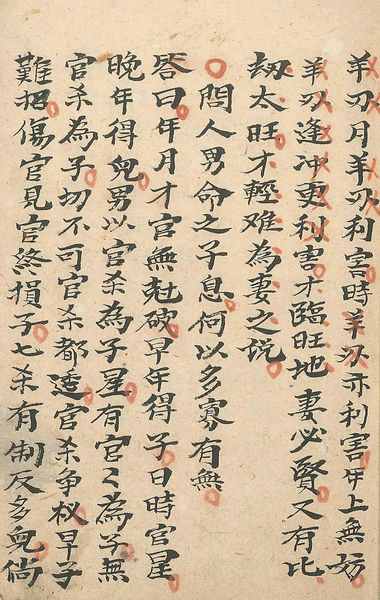 羊刃月羊刃利害時羊刃亦利害年上無妨
羊刃逢冲更利害才臨旺地妻必賢又有比
刼太旺才輕难為妻之说
○問人男命之子息何以多寡有無
答曰年月才官無尅破早年得子日時官星
晚年得兒男以官杀為子星有官〻為子無
官杀為子切不可官杀都透官杀争权早子
難招傷官見官終損子七杀有制反多兒倘